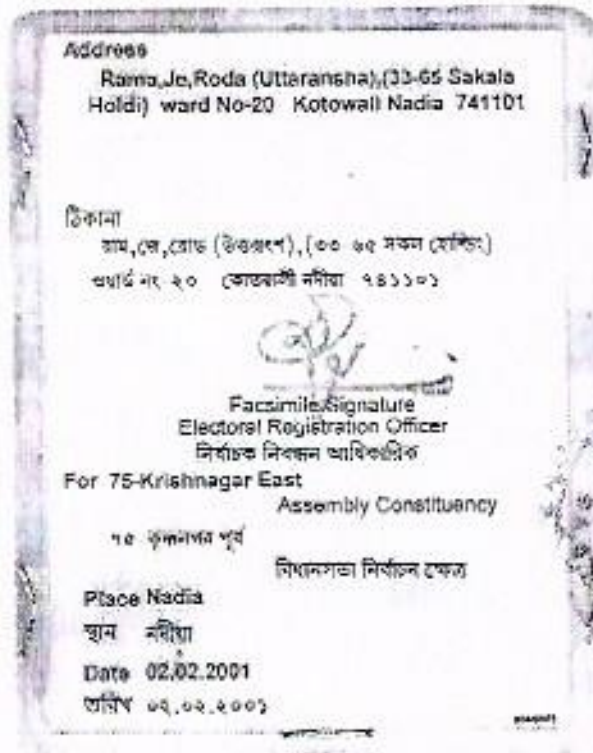 Address
Rama,Je,Roda (Uttaransha),(33-65 Sakala
Holdi) ward No-20 Kotowali Nadia 741101
ঠিকানা
রাম,জে,রোড (উত্তরাংশ),(৩৩ ৬৫ সকল হোল্ডিং)
ওয়ার্ড নং ২০ কোতয়ালী নদীয়া ৭৪১১০১
Facsimile Signature
Electoral Registration Officer
নির্বাচক নিবন্ধন আধিকারিক
For 75-Krishnagar East
Assembly Constituency
৭৫ কৃষ্ণনগর পূর্ব
বিধানসভা নির্বাচন ক্ষেত্র
Place Nadia
স্থান নদীয়া
Date 02.02.2001
তারিখ ০২.০২.২০০১